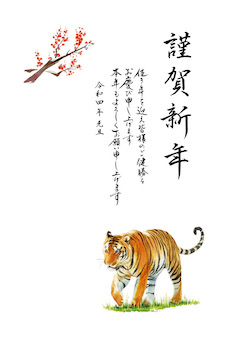 謹賀新年
佳き年を迎え皆様のご健勝を
お慶び申し上げます
本年もよろしくお願い申し上げます
令和四年 元旦